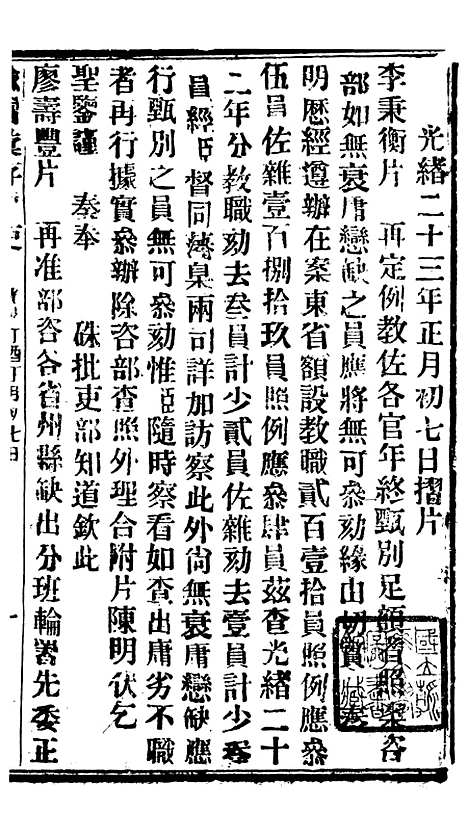 光緒二十三年正月初七日摺片
李秉衡片　再定例教佐各官年終甄別足額者照案咨
部如無衰庸戀缺之員應將無可叅劾緣由切實
明歷經遵辦在案東省額設教職貳百壹拾員照例應叅
伍員佐雜壹百捌拾玖員照例應叅肆員茲查光緒二十
二年分教職劾去叁員計少貳員佐雜劾去壹員計少叁
員經臣督同藩臬兩司詳加訪察此外尙無衰庸戀缺應
行甄別之員無可叅劾惟有隨時察看如查出庸劣不職
者再行據實叅辦除咨部查照外理合附片陳明伏乞
聖鑒謹　奏奉　硃批吏部知道欽此
廖壽豐片　再准部咨各省州縣缺出分班輪署先委正
一